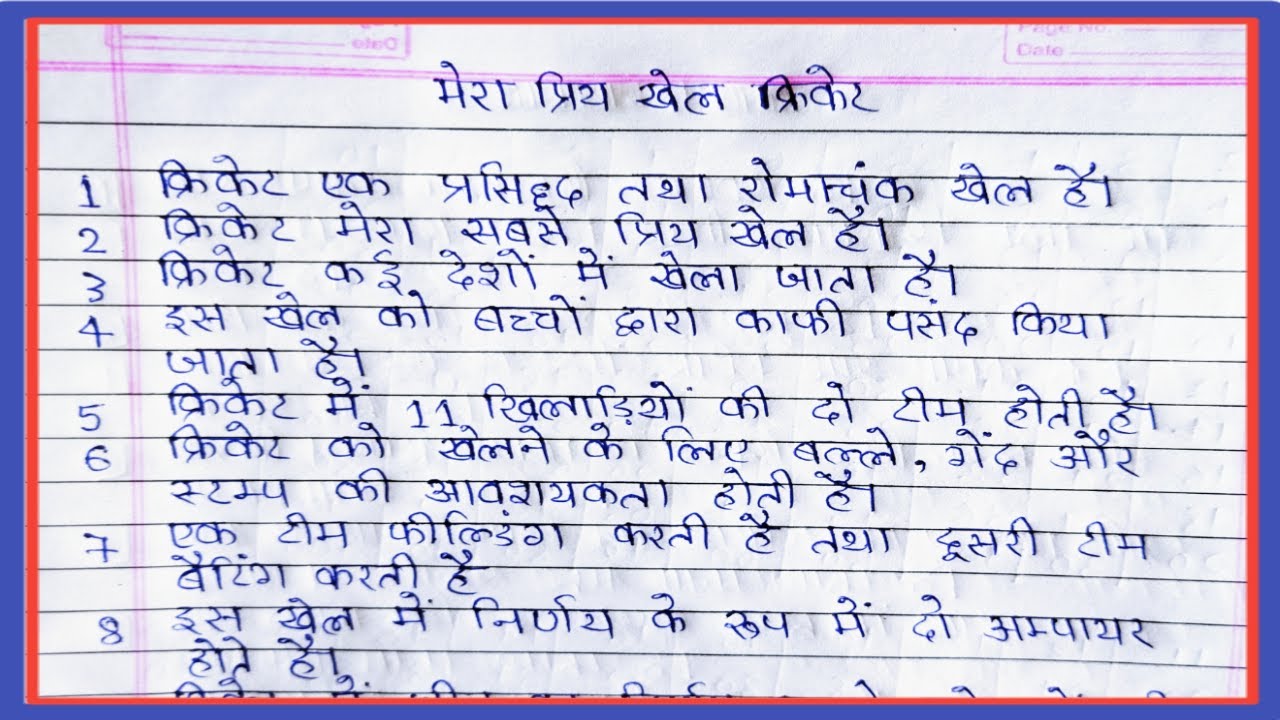 Date
Page No.
Date
मेरा प्रिय खेल क्रिकेट
1 क्रिकेट एक प्रसिद्द तथा रोमान्चंक खेल है।
2 क्रिकेट मेरा सबसे प्रिय खेल है।
3 क्रिकेट कई देशों में खेला जाता है।
4 इस खेल को बच्चों द्वारा काफी पसंद किया
जाता है।
5 क्रिकेट में 11 खिलाड़ियों की दो टीम होती है।
6 क्रिकेट को खेलने के लिए बल्ले, गेंद और
स्टम्प की आवशयकता होती है।
7 एक टीम फील्डिंग करती है तथा दूसरी टीम
बैटिंग करती है
8 इस खेल में निर्णय के रूप में दो अम्पायर
होते है।